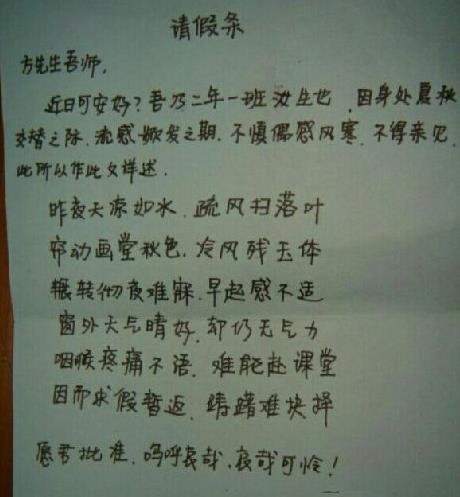 请假条
方先生吾师,
近日可安好?吾乃二年一班汝生也,因身处夏秋
交替之际,流感频发之期,不慎偶感风寒,不得亲见,
此所以作此文详述.
昨夜天凉如水,疏风扫落叶
帘动画堂秋色,冷风残玉体
辗转彻夜难寐,早起感不适
窗外天气晴好,却仍无气力
咽喉疼痛不语,难能赴课堂
因而求假暂返,踌躇难抉择
愿君批准,呜呼哀哉,哀哉可怜!